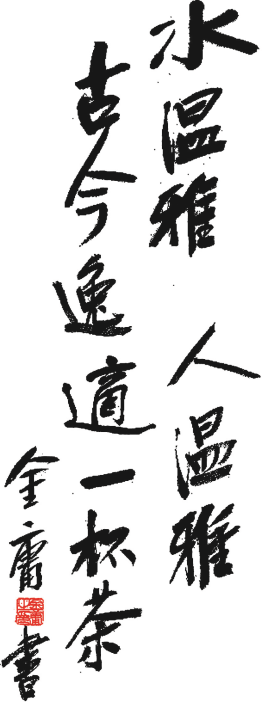 水温雅 人温雅
古今逸適一杯茶
金庸書